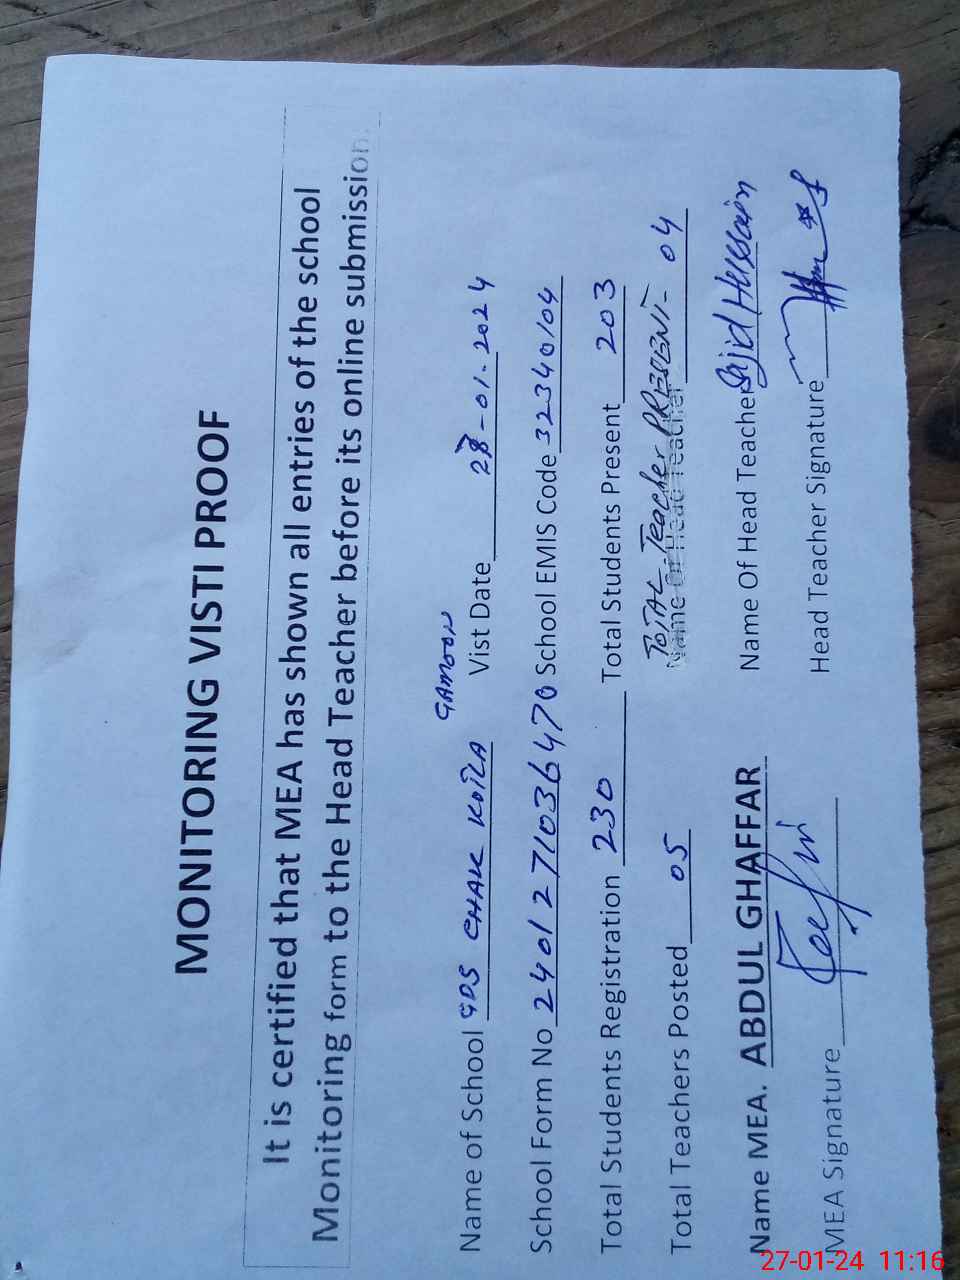 MONITORING VISTI PROOF
It is certified that MEA has shown all entries of the school
Monitoring form to the Head Teacher before its online submission.
Name of School GPS CHAK KOTLA GAMOON Vist Date -01-2024
School Form No School EMIS Code 32340104
Total Students Registration 230 Total Students Present 203
Total Teachers Posted 05 TOTAL Teacher PRESENT- 04
Name Of Head Teacher
Name MEA. ABDUL GHAFFAR Name Of Head Teacher Sajid Hussain
MEA Signature Head Teacher Signature
27-01-24 11:16